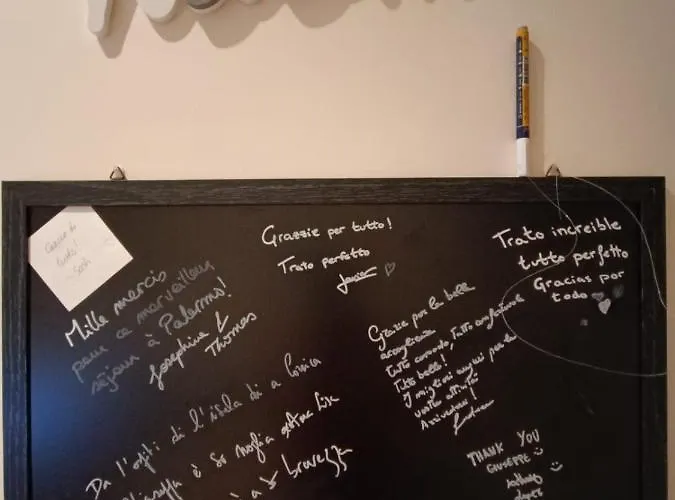 Grazie di
tutto!
Sash
Mille mercis
pour ce merveilleux
séjour à Palermo!
Josephine &
Thomas
Grazzie per tutto!
Trato perfetto
Javier
Trato increible
tutto perfetto
Gracias por
todo
Grazie per la bella
accoglienza
Tutto comodo, Tutto
Tutto bello!
I migliori auguri per la
vostra attività
Arrivederci!
Da l'ospiti di l'isula di a
è
bravezza
THANK YOU
GIUSEPPE
Anthony